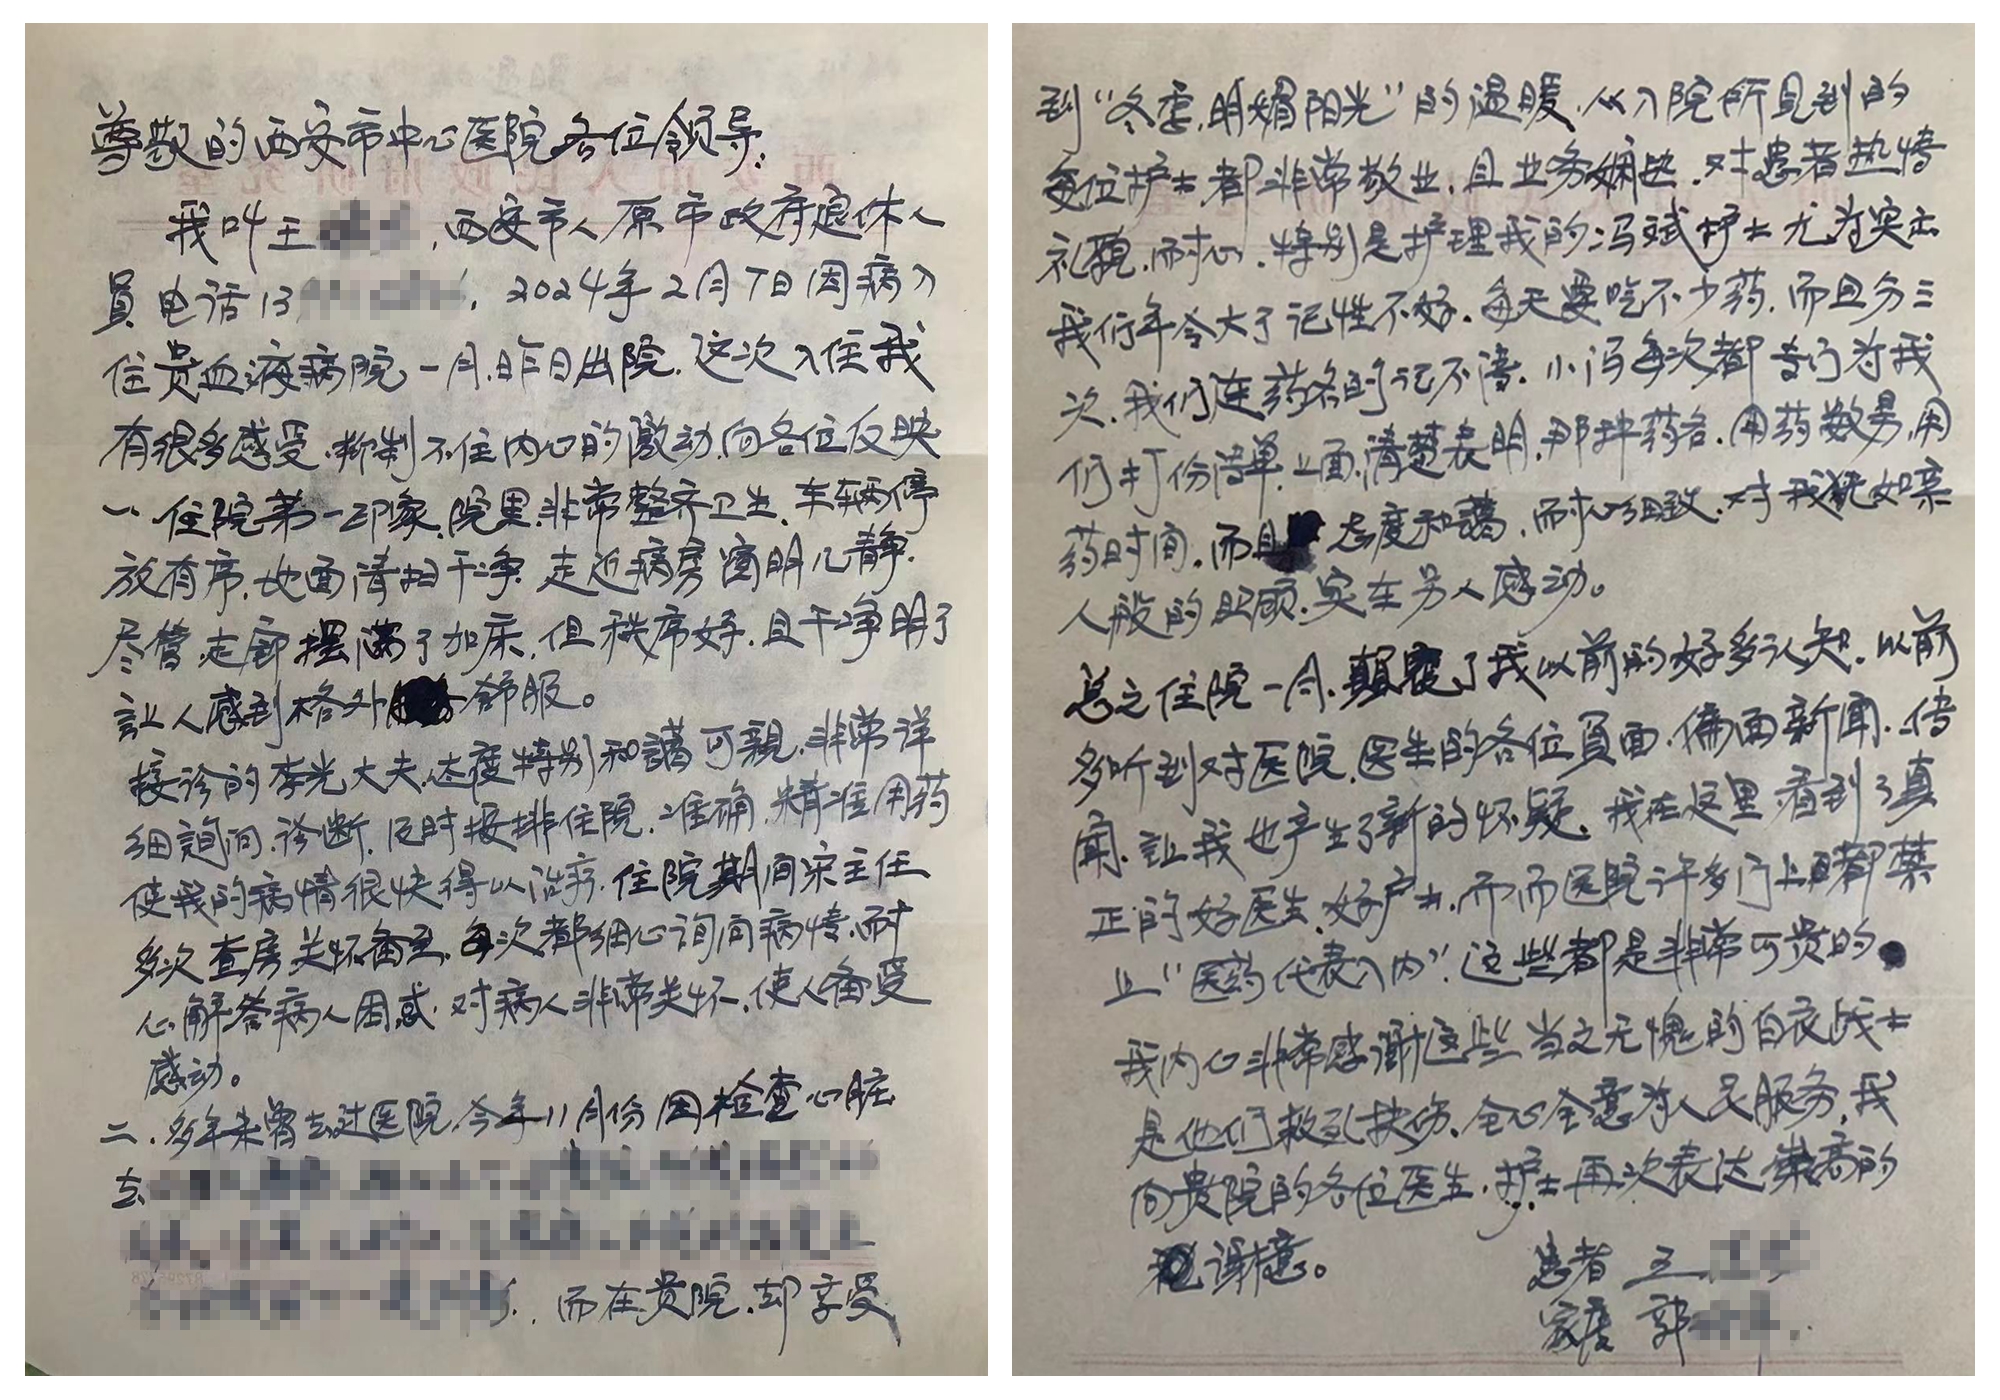 尊敬的西安市中心医院各位领导：
我叫王，西安市人原市政府退休人
員电话13，2024年2月7日因病入
住贵血液病院一月.昨日出院.这次入住我
有很多感受.抑制不住内心的激动.向各位反映
一.住院第一印象.院里.非常整齐卫生.车辆停
放有序.地面清扫干净.走近病房窗明几静.
尽管.走廊摆满了加床.但秩序好.且干净明了
讓人感到格外舒服。
接诊的李光大夫.态度特别和譪可親.非常详
细詢问.诊断.及时按排住院.准确.精准用药
使我的病情很快得以治疗.住院期间宋主任
多次查房关怀备至.每次都细心询问病情.耐
心解答病人困惑.对病人非常关怀.使人备受
感动。
二.多年未曾去过医院.今年11月份因检查心脏
去
.而在贵院.却享受
到“冬季.明媚阳光”的温暖.从入院所見到的
每位护士.都非常敬业.且业务娴熟.对患者热情
礼貌.而耐心.特别是护理我的冯斌护士尤为突出
我们年令大了记性不好.每天要吃不少药.而且分三
次.我们连药名的记不清.小冯每次都专门为我
们打份清单.上面.清楚表明.那种药名.用药数量.用
药时间.而且态度和譪.耐心细致.对我犹如亲
人般的照顾.实在另人感动。
总之住院一月.颠覆了我以前的好多认知.以前
多听到对医院.医生的各位負面.偏面新闻.传
闻.讓我也产生了新的怀疑.我在这里.看到了真
正的好医生.好户士.而而医院许多门上.都禁
止“医药代表入内”.这些都是非常可贵的
我内心非常感谢這些当之无愧的白衣战士
是他们救死扶伤.全心全意为人民服务.我
向贵院的各位医生.护士再次表达崇高的
谢意。
患者 王
家属 郭